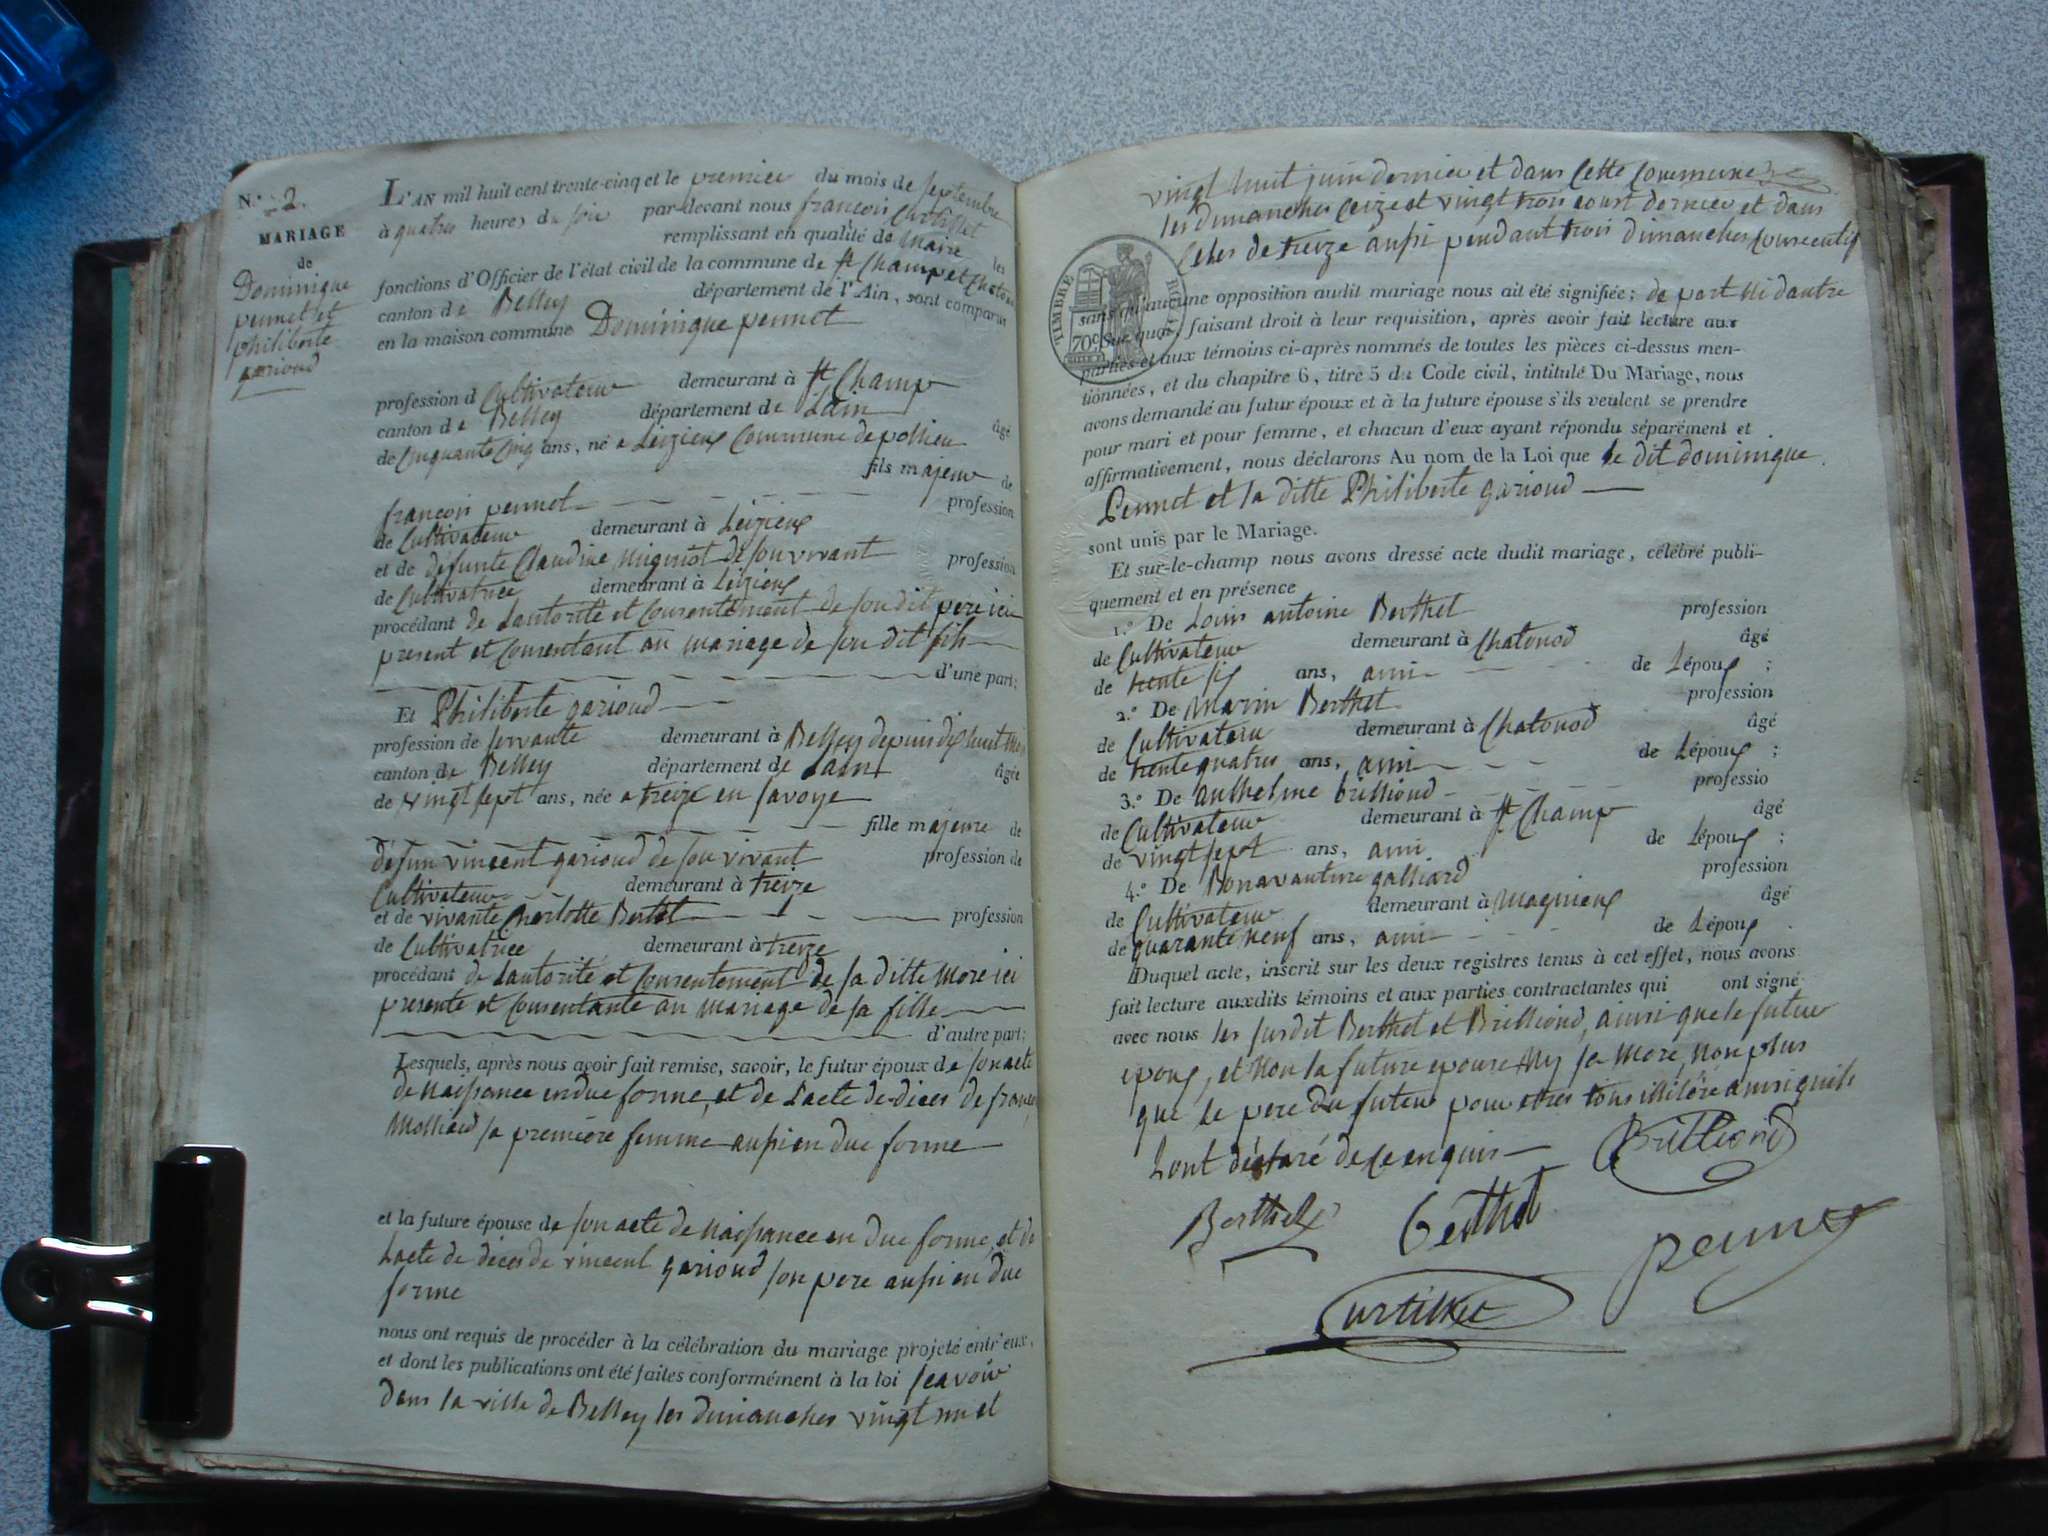 N.° 2.
MARIAGE
de
Dominique
pennet et
philiberte
gariond
L'AN mil huit cent trente-cinq et le premier du mois de septembre
à quatre heures du soir par-devant nous françois Curtillet
remplissant en qualité de Maire les
fonctions d'Officier de l'état civil de la commune de St Champ et Chatonod
canton de Belley département de l'Ain, sont comparus
en la maison commune Dominique pennet
profession d Cultivateur demeurant à St Champ
canton de Belley département de Lain âgé
de Cinquante Cinq ans, né a Leizieux Commune de pollieu
fils majeur de
françois pennet profession
de Cultivateur demeurant à Leizieux
et de défunte Claudine Mignot de son vivant profession
de Cultivatrice demeurant à Leizieux
procédant de Lautorité et Consentement de son dit pere ici
present et Consentant au mariage de son dit fils
d'une part;
Et Philiberte gariond
profession de servante demeurant à Belley depuis dix huit mois
canton de Belley département de Lain âgée
de vingt sept ans, née a treize en Savoye
fille majeure de
défun vincent gariond de son vivant profession de
Cultivateur demeurant à treize
et de vivante Charlotte Bertet profession
de Cultivatrice demeurant à treize
procédant de Lautorité et Consentement de sa ditte More ici
presente et Consentante au mariage de sa fille
d'autre part;
Lesquels, après nous avoir fait remise, savoir, le futur époux de son acte
de Naissance en due forme, et de Lacte de dices de
Molliard sa première femme aussi en due forme
et la future épouse de son acte de Naissance en due forme, et de
Lacte de dices de vincent gariond son pere aussi en due
forme
nous ont requis de procéder à la célébration du mariage projeté entr'eux,
et dont les publications ont été faites conformément à la loi scavoir
dans la ville de Belley les dimanches vingt un et
vingt huit juin dernier et dans Cette Commune
les dimanches seize et vingt trois aoust dernier et dans
Celles de treize aussi pendant trois dimanches Consecutif
TIMBRE ROYAL
70c
sans qu'aucune opposition audit mariage nous ait été signifiée; de part Ni dautre
Sur quoi, faisant droit à leur requisition, après avoir fait lecture aux
parties et aux témoins ci-après nommés de toutes les pièces ci-dessus men-
tionnées, et du chapitre 6, titre 5 du Code civil, intitulé Du Mariage, nous
avons demandé au futur époux et à la future épouse s'ils veulent se prendre
pour mari et pour femme, et chacun d'eux ayant répondu séparément et
affirmativement, nous déclarons Au nom de la Loi que le dit dominique
Pennet et la ditte Philiberte gariond
sont unis par le Mariage.
Et sur-le-champ nous avons dressé acte dudit mariage, célébré publi-
quement et en présence
1.° De Louis antoine Berthet profession
de Cultivateur demeurant à Chatonod âgé
de trente six ans, ami de Lépoux ;
2.° De Marin Berthet profession
de Cultivateur demeurant à Chatonod âgé
de trente quatres ans, ami de Lépoux ;
3.° De anthelme brilliond professio
de Cultivateur demeurant à St Champ âgé
de vingt sept ans, ami de Lépoux ;
4.° De Bonavanture galliard profession
de Cultivateur demeurant à Magnieux âgé
de quarante neuf ans, ami de Lépoux
Duquel acte, inscrit sur les deux registres tenus à cet effet, nous avons
fait lecture auxdits témoins et aux parties contractantes qui ont signé
avec nous les susdit Berthet et Brilliond, ainsi que le futur
epoux, et Non la future epouse Ny sa More, Non plus
que le pere du futur pour etres tous illitéré ainsi quils
Lont déclaré de ce enquis
Brilliond
Berthet Berthet
Pennet
Curtillet